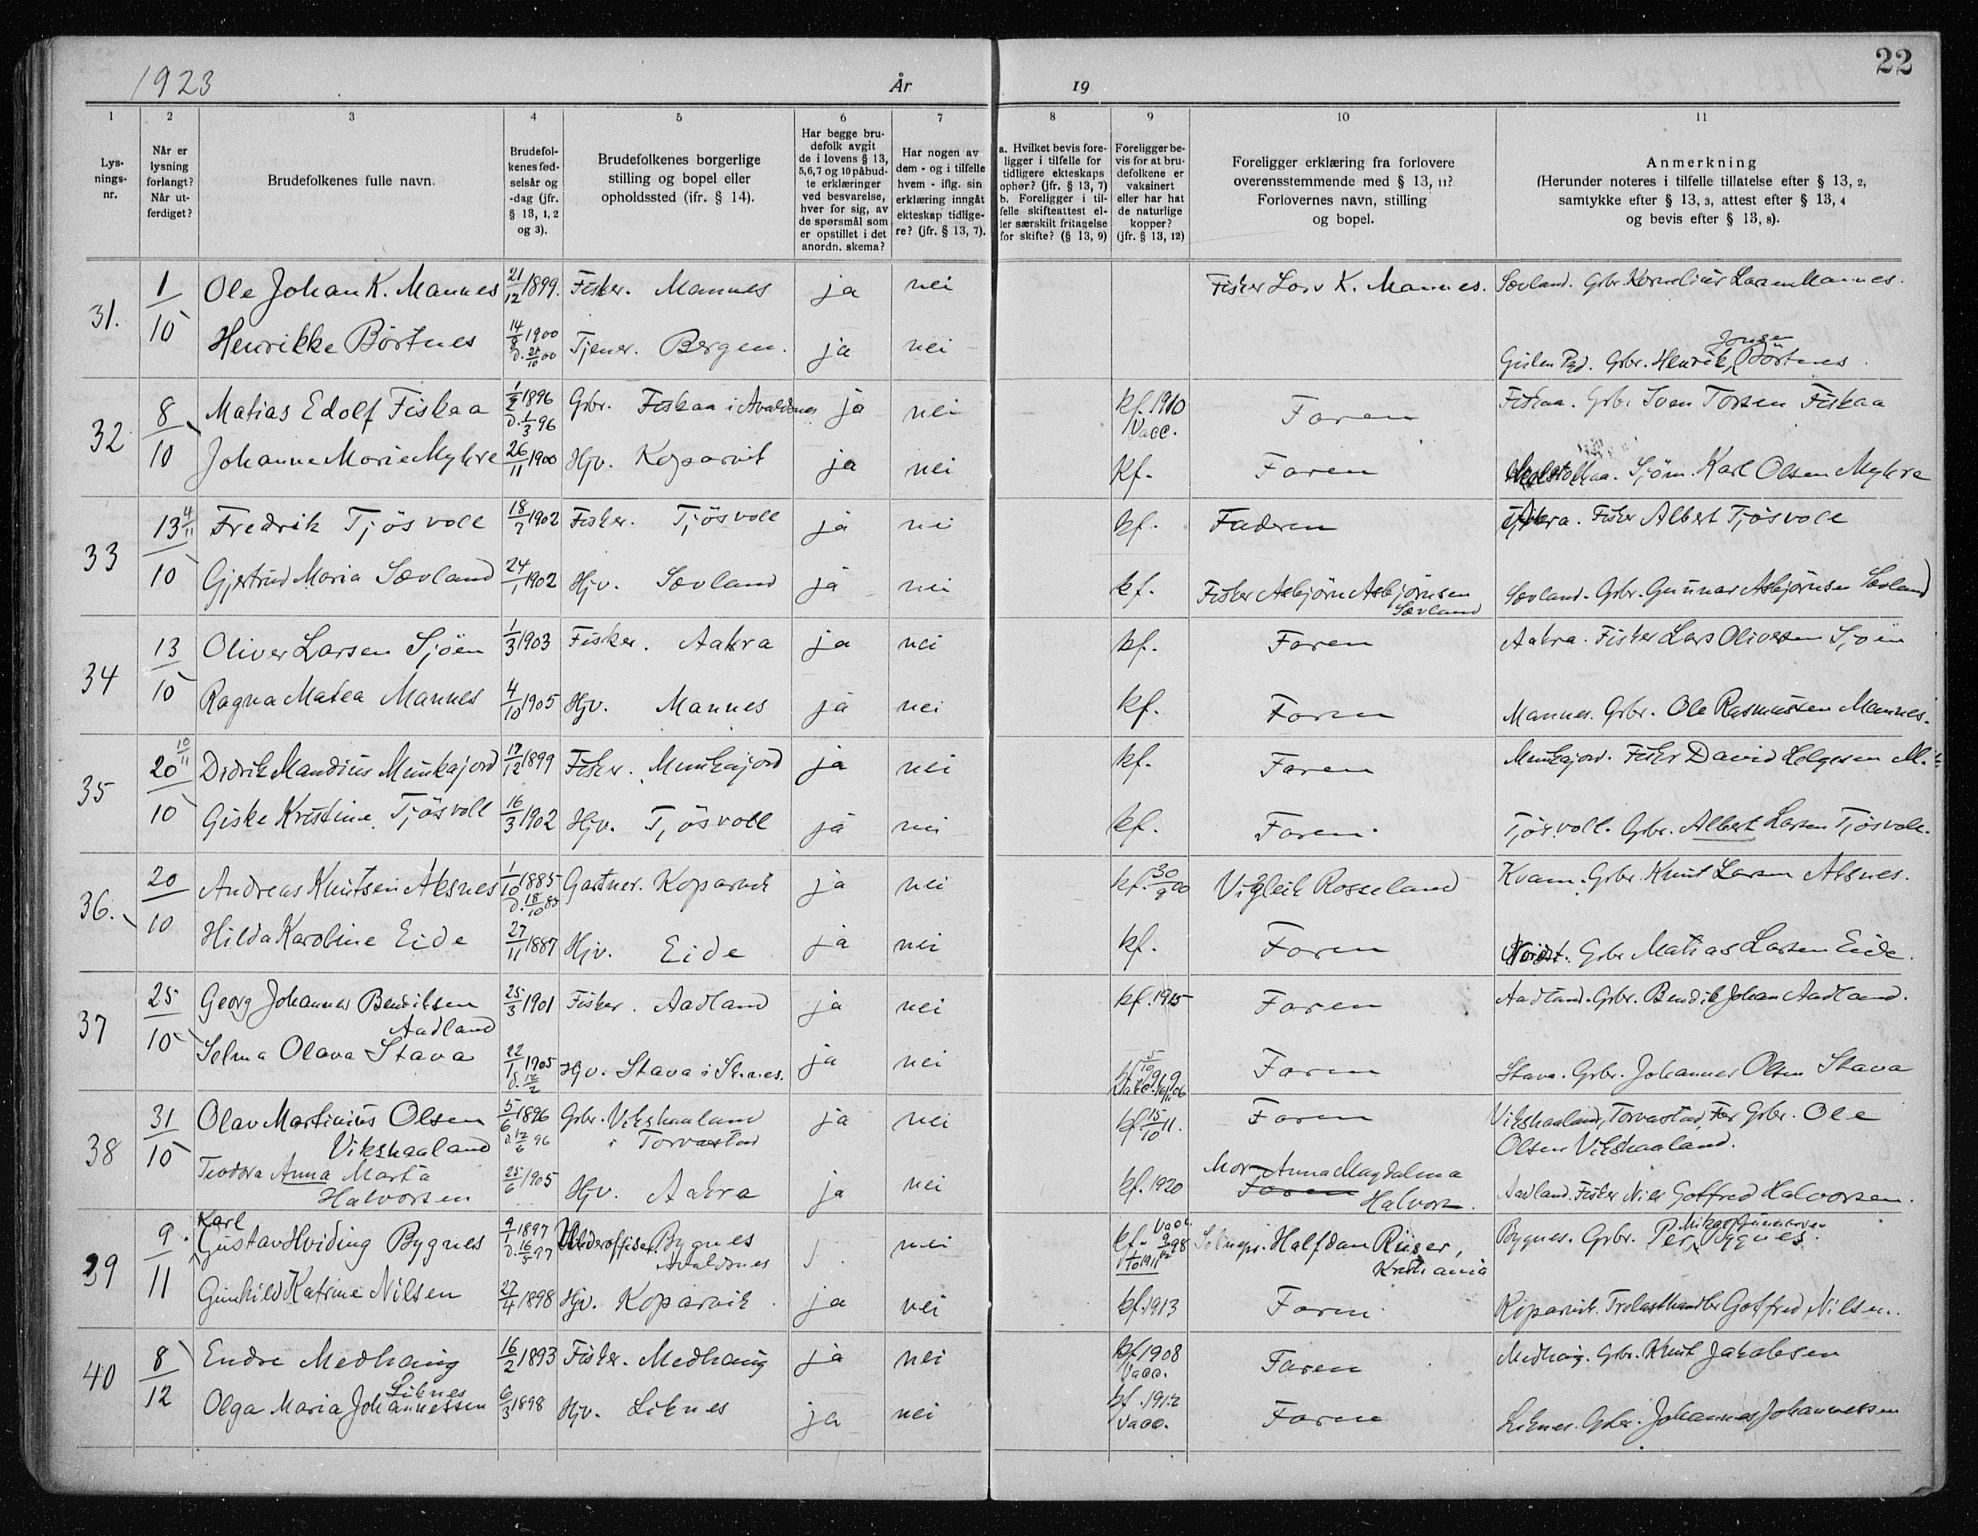 22
1923
År
19
1
2
3
4
5
6
7
8
9
10
11
Lys-
nings-
nr.
Når er
lysning
forlangt?
Når ut-
ferdiget?
Brudefolkenes fulle navn.
Brudefol-
kenes fød-
selsår og
-dag (jfr.
§ 13, 1, 2
og 3).
Brudefolkenes borgerlige
stilling og bopel eller
opholdssted (ifr. § 14).
Har begge bru-
defolk avgit
de i lovens § 13,
5,6,7 og 10 påbud-
te erklæringer
ved besvarelse,
hver for sig, av
de spørsmål som
er opstillet i det
anordn. skema?
Har nogen av
dem - og i tilfelle
hvem - iflg. sin
erklæring inngåt
ekteskap tidlige-
re? (jfr. § 13, 7).
a. Hvilket bevis fore-
ligger i tilfelle for
tidligere ekteskaps
ophør? (jfr. § 13, 7)
b. Foreligger i til-
felle skifteattest el-
ler særskilt fritagelse
for skifte? (§ 13, 9)
Foreligger be-
vis for at bru-
defolkene er
vaksinert
eller har hat
de naturlige
kopper?
(jfr. § 13, 12)
Foreligger erklæring fra forlovere
overensstemmende med § 13, 11?
Forlovernes navn, stilling
og bopel.
Anmerkning
(Herunder noteres i tilfelle tillatelse efter § 13, 2,
samtykke efter § 13, 3, attest efter § 13, 4
og bevis efter § 13, 8).
31. 1/10 Ole Johan K. Mannes 21/12 1899. Fisker. Mannes ja nei Fisker Lars K. Mannes. Sævland. Gbr. Kornelius Larsen Mannes.
Henrikke Børtnes 14/9 1900 D. 21/10 00 Tjener. Bergen. ja nei Gbr. Henrik Jonsen Børtnes.
32 8/10 Matias Edolf Fiskaa 1/2 1896 D. 1/3 96 Gbr. Fiskaa i Avaldsnes ja nei kf. 1910 Vacc. Faren Fiskaa. Gbr. Sven Torsen Fiskaa
Johanne Marie Myhre 26/11 1900 Hjv. Kopervik ja nei Kf. Faren Sjøm. Karl Olsen Myhre
33 13/10 4/11 Fredrik Tjösvoll 18/7 1902 Fisker. Tjösvoll ja nei kf. Faderen Fisker Albert Tjösvoll
Gjertrud Maria Sævland 24/1 1902 Hjv. Sævland ja nei kf. Fisker Asbjørn Asbjørnsen Sævland Sævland. Gbr. Gunnar Asbjørnsen Sævland
34 13/10 Oliver Larsen Sjöen 1/3 1903 Fisker. Aakra ja nei kf. Faren Aakra. Fisker Lars Oliversen Sjöen
Ragna Matea Mannes 4/10 1905 Hjv. Mannes ja nei kf. Faren Mannes. Gbr. Ole Rasmussen Mannes.
35 20/10 10/11 Didrik Mandius Munkajord 17/12 1899 Fisker. Munkajord ja nei kf. Faren Munkajord. Fisker David Helgesen M.
Giske Kristine Tjösvoll 16/3 1902 Hjv. Tjösvoll ja nei kf. Faren. Tjösvoll. Gbr. Albert Larsen Tjösvoll.
36. 20/10 Andreas Knutsen Aksnes 1/10 1885 D. 18/10 85 Gartner. Kopervik ja nei kf. 30/9 00 Vigleik Rosseland Kvam. Gbr. Knut Larsen Aksnes.
Hilda Karoline Eide 27/11 1887 Hjv. Eide ja nei kf. Faren Gbr Matias Larsen Eide.
37 25/10 Georg Johannes Bendiksen Aadland 25/3 1901 Fisker. Aadland ja nei kf. 1915 Faren Aadland. Gbr. Bendik Johan Aadland.
Selma Olava Stava 22/1 1905 D. 12/2 Hjv. Stava i Skaanes. ja nei kf. 5/10 1919 Vacc. Faren Stava. Gbr. Johannes Olsen Stava
38 31/10 Olav Martinius Olsen Vikshaaland 5/6 1896 D. 12/6 96 Gbr. Vikshaaland i Torvastad ja nei kf. 15/10 11. Faren Vikshaaland, Torvastad, Far Gbr. Ole
Olsen Vikshaaland.
Teodora Anna Marta Halvorsen 25/6 1905 Hjv. Aakra ja nei kf. 1920 Mor Anna Magdalena Halvorsen. Aadland. Fisker Nils Gotfred Halvorsen.
39 9/11 Karl Gustav Hviding Bygnes 9/1 1897 D. 16/5 97 Underoffiser Bygnes Avaldsnes j. nei kf. 1/10 1911 Vacc. Halfdan Riiser, Kristiania Bygnes. Gbr. Per Mikal Gunnarsen Bygnes.
Gunhild Katrine Nilsen 27/4 1898 Hjv. Kopervik. ja nei kf. 1913 Faren Kopervik. Trelasthandler Gotfred Nilsen.
40 8/12 Endre Medhaug 16/2 1893 Fisker. Medhaug ja nei kf 1908 Vacc. Faren Medhaug. Gbr. Knut Jakobsen
Olga Maria Johannessen Liknes 6/3 1898 Hjv. Liknes ja nei kf. 1912 Vacc. Faren Liknes. Gbr. Johannes Johannessen